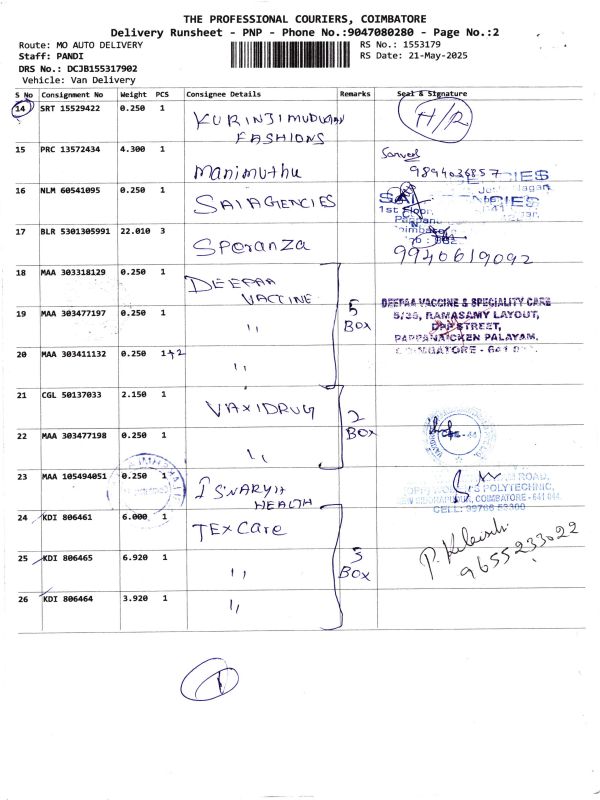 THE PROFESSIONAL COURIERS, COIMBATORE
Delivery Runsheet - PNP - Phone No.:9047080280 - Page No.:2
Route: MO AUTO DELIVERY
RS No.: 1553179
Staff: PANDI
RS Date: 21-May-2025
DRS No.: DCJB155317902
Vehicle: Van Delivery
S No Consignment No Weight PCS Consignee Details Remarks Seal & Signature
14 SRT 15529422 0.250 1 KURINJIMUDUGAN
FASHIONS
H/R
15 PRC 13572434 4.300 1 Manimuthu
9894036857
16 NLM 60541095 0.250 1 SAIAGENCIES
1st Floor,
17 BLR 5301305991 22.010 3 Speranza
9940619092
18 MAA 303318129 0.250 1 DEEPAA
VACCINE
19 MAA 303477197 0.250 1 ,,
5
BOX
DEEPAA VACCINE & SPECIALITY CARE
5/35, RAMASAMY LAYOUT,
STREET,
PAPPANAICKEN PALAYAM,
COIMBATORE - 641
20 MAA 303411132 0.250 1+2 ,,
21 CGL 50137033 2.150 1 VAXIDRUG
2
BOX
22 MAA 303477198 0.250 1 ,,
23 MAA 105494051 0.250 1 ISWARYA
HEALTH
ROAD,
POLYTECHNIC,
COIMBATORE - 641 044.
CELL: 99766 53300
24 KDI 806461 6.000 1 TEXCARE
25 KDI 806465 6.920 1 ,,
3
BOX
9655233022
26 KDI 806464 3.920 1 ,,
1